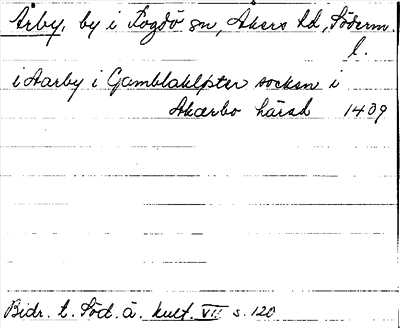 Årby, by i Fogdö sn, Åkers hd, Söderm.
l.
i Aarby i Gamblaklpster socken i
Akærbo härad 1409
Bidr. t. Söd. ä. kult. VII s. 120